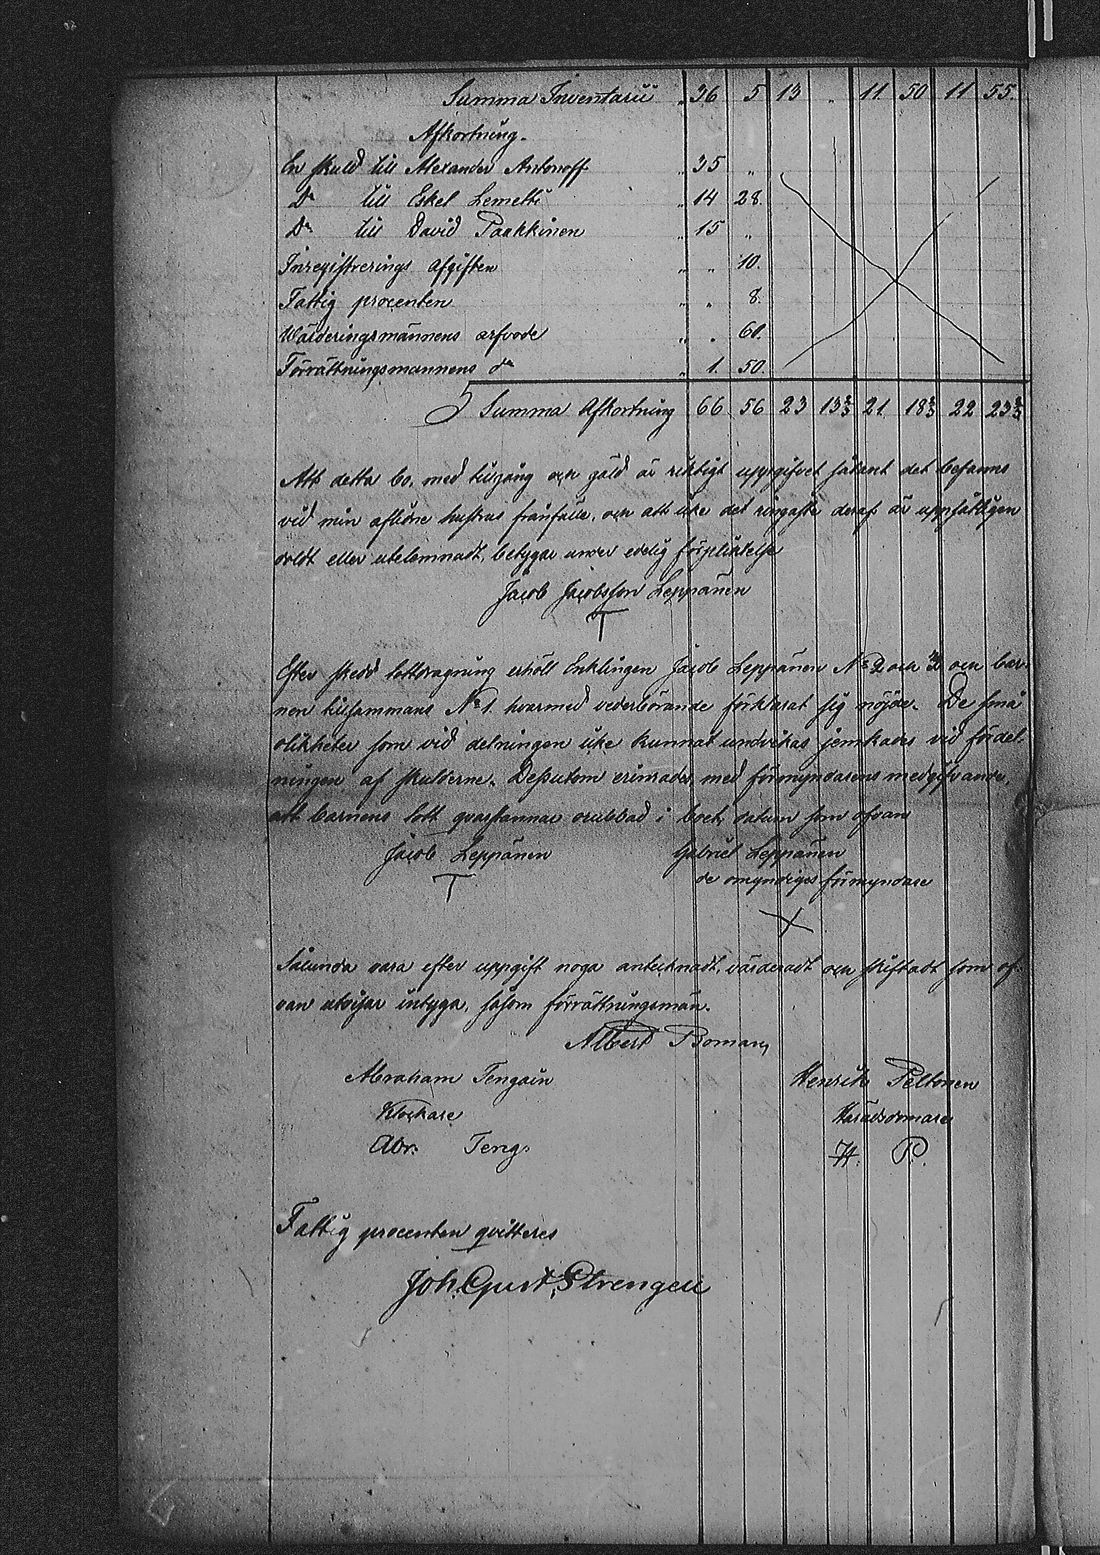 Summa Inventarii " 36 5 13 " 11 50 11 55.
Afkortning.
En skuld till Alexander Antonoff " 35 "
Do till Eskel Lemetti " 14 28.
Do till David Paakkinen " 15 "
Inregistrerings afgiften " " 10.
Fattig procenten " " 8.
Wärderingsmännens arfvode " " 60.
Förrättningsmannens do " 1. 50.
Summa Afkortning 66 56 23 13⅔ 21 18⅔ 22 23⅔
Att detta bo, med tillgång och gäld är riktigt uppgifvet sådant det befanns
vid min aflidne hustrus frånfälle, och att icke det ringaste deraf är uppsåtligen
doldt eller utelemnadt, betygar under edelig förpliktelse
Jacob Jacobsson Leppänen
T
Efter skedd lottdragning erhöll Enklingen Jacob Leppänen No 2 och 3 och bar-
nen tillsammans No 1. hvarmed vederbörande förklarat sig nöjde. De små
olikheter som vid delningen icke kunnat undvikas jemkades vid fördel-
ningen af skulderne. Dessutom med förmyndarens medgifvande,
att barnens lott qvarstannar orubbad i boet, datum som ofvan
Jacob Leppänen Gabriel Leppänen
T de omyndiges förmyndare
X
Sålunda vara efter uppgift noga antecknadt, värderadt och skiftadt som of-
van utvisar intyga, såsom förrättningsmän.
Albert Boman
Abraham Tengain Henrik Peltonen
Klockare Häradsdomare
Abr. Teng. H. P.
Fattig procenten qvitteres
Joh. Gust. Strengell